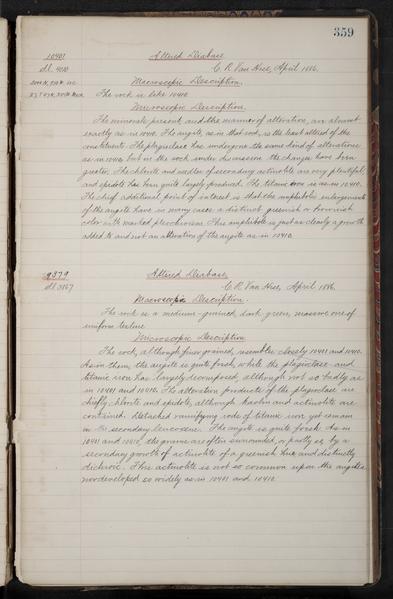 359
10401
Altered Diabase
sl. 4010
C. R. Van Hise, April 1886.
2000 N, 870 W. SEC.
Macroscopic Description.
The rock is like 10410.
Microscopic Description.
The minerals present and the manner of alteration, are almost
exactly as in 10410. The augite, as in that rock, is the least altered of the
constituents. The plagioclase has undergone the same kind of alterations
as in 10410, but in the rock under discussion the changes have been
greater. The chlorite and needles of secondary actinolite are very plentiful,
and epidote has been quite largely produced. The titanic iron is as in 10410.
The chief additional point of interest is that the amphibolic enlargements
of the augite have in many cases a distinct greenish or brownish
color with marked pleochroism. This amphibole is just as clearly a growth
added to and not an alteration of the augite as in 10410.
9379
Altered Diabase
sl 3167
C. R. Van Hise, April 1886.
Macroscopic Description.
The rock is a medium-grained, dark green, massive one of
uniform texture
Microscopic Description
The rock, although finer grained, resembles closely 10401 and 10410.
As in them, the augite is quite fresh, while the plagioclase and
titanic iron has largely decomposed, although not so badly as
in 10401 and 10410. The alteration products of the plagioclase are
chiefly chlorite and epidote, although kaolin and actinolite are
contained. Detached ramifying rods of titanic iron yet remain
in the secondary leucoxene. The augite is quite fresh. As in
10401 and 10410, the grains are often surrounded, or partly so, by a
secondary growth of actinolite of a greenish hue and distinctly
dichroic. This actinolite is not so common upon the augites,
nor developed so widely as in 10401 and 10410.